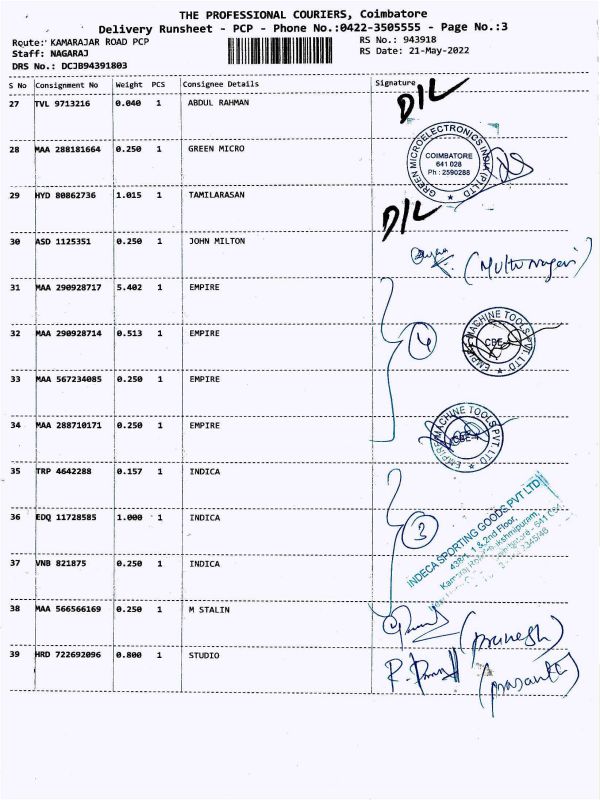 THE PROFESSIONAL COURIERS, Coimbatore
Delivery Runsheet - PCP - Phone No.:0422-3505555 - Page No.:3
Route: KAMARAJAR ROAD PCP
RS No.: 943918
Staff: NAGARAJ
RS Date: 21-May-2022
DRS No.: DCJB94391803
S No Consignment No Weight PCS Consignee Details Signature
27 TVL 9713216 0.040 1 ABDUL RAHMAN D/L
28 MAA 288181664 0.250 1 GREEN MICRO
GREEN MICROELECTRONICS INDIA (P) LTD
COIMBATORE
641 028
Ph : 2590288
29 HYD 80862736 1.015 1 TAMILARASAN D/L
30 ASD 1125351 0.250 1 JOHN MILTON
31 MAA 290928717 5.402 1 EMPIRE
32 MAA 290928714 0.513 1 EMPIRE 4
EMPIRE MACHINE TOOLS PVT. LTD
CBE-4
33 MAA 567234085 0.250 1 EMPIRE
34 MAA 288710171 0.250 1 EMPIRE
EMPIRE MACHINE TOOLS PVT. LTD
35 TRP 4642288 0.157 1 INDICA
36 EDQ 11728585 1.000 1 INDICA 3
INDECA SPORTING GOODS PVT LTD
438/1, 1 & 2nd Floor,
37 VNB 821875 0.250 1 INDICA
38 MAA 566566169 0.250 1 M STALIN (prunesh)
39 HRD 722692096 0.800 1 STUDIO